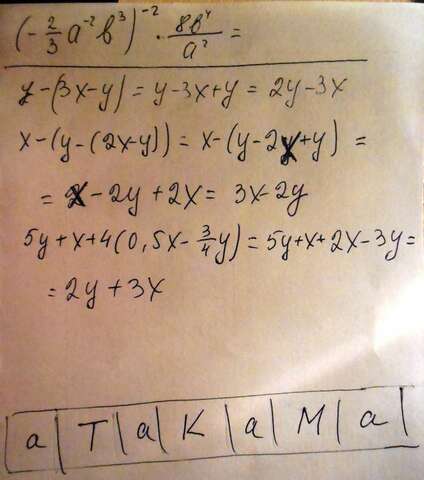 (-2/3 a⁻²b³)⁻² · 8b⁴/a² =
y-(3x-y) = y-3x+y = 2y-3x
x-(y-(2x-y)) = x-(y-2x+y) =
= x-2y+2x = 3x-2y
5y+x+4(0,5x-3/4y) = 5y+x+2x-3y =
= 2y+3x
a | T | a | K | a | M | a